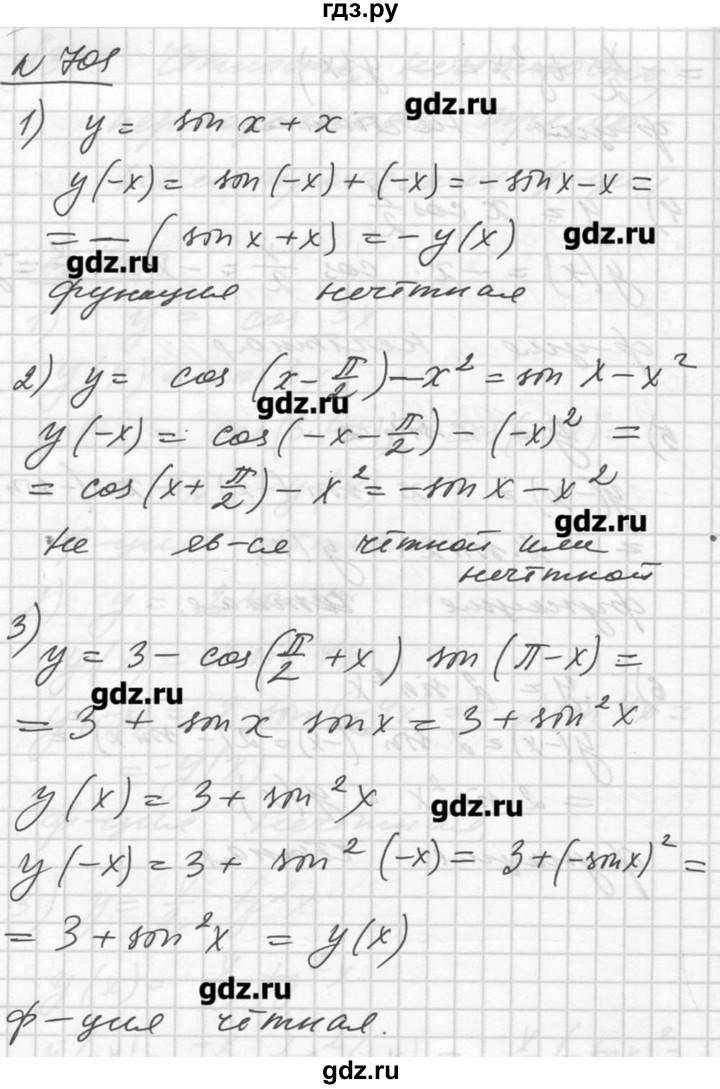 гдз.ру
N 709
gdz.ru
1) y = sin x + x
y(-x) = sin(-x) + (-x) = -sin x - x =
= -(sin x + x) = -y(x)
gdz.ru
gdz.ru
функция нечётная
2) y = cos(x - π/2) - x² = sin x - x²
gdz.ru
y(-x) = cos(-x - π/2) - (-x)² =
= cos(x + π/2) - x² = -sin x - x²
gdz.ru
не яв-ся чётной или
нечётной
3)
y = 3 - cos(π/2 + x) sin(π - x) =
gdz.ru
= 3 + sin x sin x = 3 + sin²x
y(x) = 3 + sin²x
gdz.ru
y(-x) = 3 + sin²(-x) = 3 + (-sin x)² =
= 3 + sin²x = y(x)
gdz.ru
ф-ция чётная.
gdz.ru